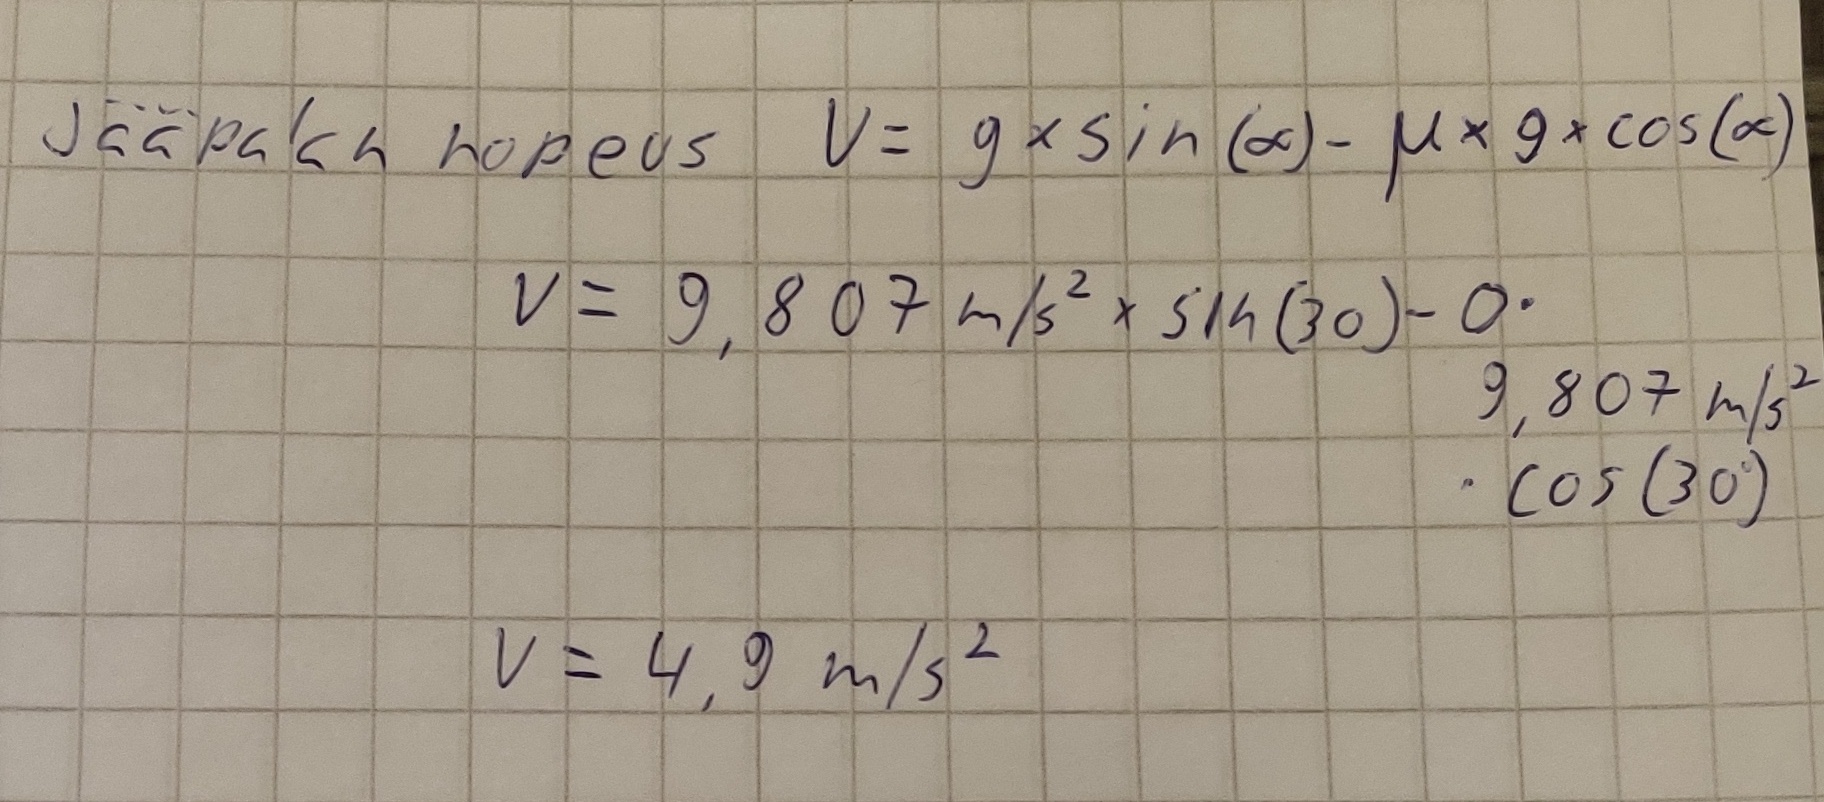 Jääpalan nopeus V = g × sin(α) - μ × g × cos(α)
V = 9,807 m/s² × sin(30) - 0·
9,807 m/s²
· cos(30°)
V = 4,9 m/s²